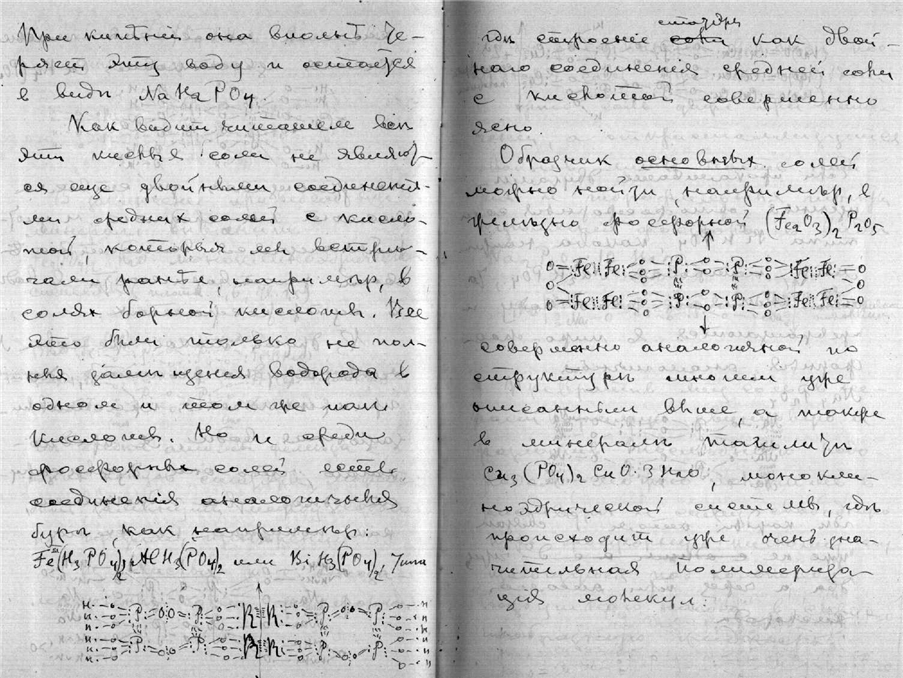 При кипѣніи она вполнѣ те-
ряет эту воду и остается
в видѣ NaH2PO4.
Как видит читатель всѣ
эти кислыя соли не являют-
ся еще двойными соединенія-
ми средних солей с кисло-
той, которыя мы встрѣ-
чали ранѣе, напримѣр, в
солях борной кислоты. Все
это были только не пол-
ныя замѣщенія водорода в
одной и той же
кислоты. Но и среди
фосфорных солей есть
соединенія аналогичныя
бурѣ, как, напримѣр:
Fe(H3PO4)2, AlH3(PO4)2 или BiH3(PO4)2 типа
гдѣ строеніе соли как двой-
наго соединенія средней соли
с кислотой совершенно
ясно.
Образчик основных солей
можно найти, напримѣр, в
фосфорной (Fe2O3)2P2O5
совершенно аналогичной по
структурѣ многим уже
описанным выше, а также
в минералѣ тагилитѣ
Cu3(PO4)2CuO·3H2O, монокли-
ноэдрической системы, гдѣ
происходит уже очень зна-
чительная полимериза-
ція молекул: